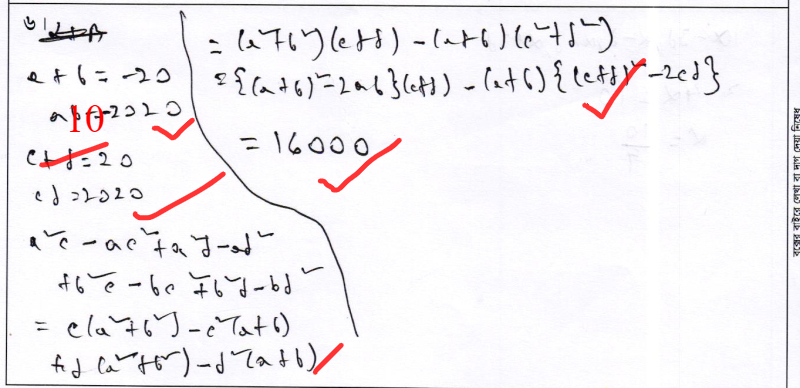 a + b = -20
ab = -2020
10
c + d = 20
cd = 2020
a²c - ac² + a²d - ad²
+ b²c - bc² + b²d - bd²
= c(a² + b²) - c²(a + b)
+ d(a² + b²) - d²(a + b)
= (a² + b²)(c + d) - (a + b)(c² + d²)
= {(a + b)² - 2ab}(c + d) - (a + b){(c + d)² - 2cd}
= 16000
বক্সের বাইরে লেখা বা দাগ দেয়া নিষেধ